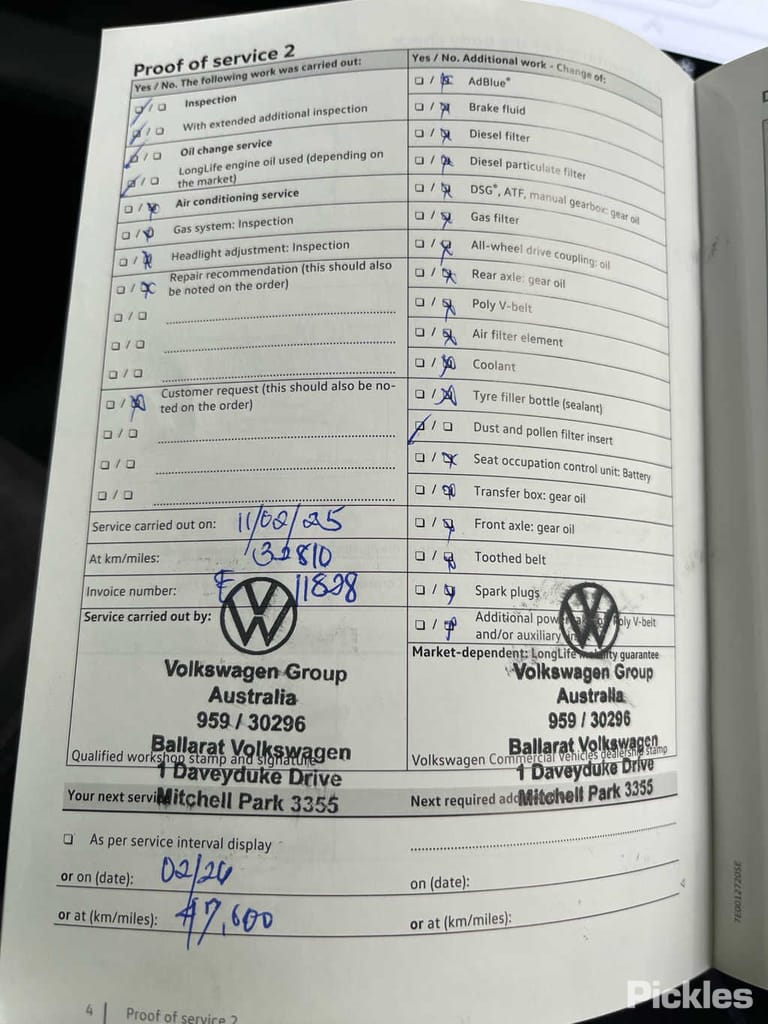 Proof of service 2
Yes / No. The following work was carried out:
Inspection
With extended additional inspection
Oil change service
LongLife engine oil used (depending on
the market)
Air conditioning service
Gas system: Inspection
Headlight adjustment: Inspection
Repair recommendation (this should also
be noted on the order)
Customer request (this should also be no-
ted on the order)
Service carried out on: 11/02/25
At km/miles: 32810
Invoice number: 11828
Service carried out by:
Volkswagen Group
Australia
959 / 30296
Ballarat Volkswagen
Qualified workshop stamp and signature
1 Daveyduke Drive
Mitchell Park 3355
Yes / No. Additional work - Change of:
AdBlue®
Brake fluid
Diesel filter
Diesel particulate filter
DSG®, ATF, manual gearbox: gear oil
Gas filter
All-wheel drive coupling: oil
Rear axle: gear oil
Poly V-belt
Air filter element
Coolant
Tyre filler bottle (sealant)
Dust and pollen filter insert
Seat occupation control unit: Battery
Transfer box: gear oil
Front axle: gear oil
Toothed belt
Spark plugs
Additional Poly V-belt
and/or auxiliary
Market-dependent: LongLife guarantee
Volkswagen Group
Australia
959 / 30296
Ballarat Volkswagen
Volkswagen Commercial Vehicles dealership stamp
1 Daveyduke Drive
Mitchell Park 3355
Your next
As per service interval display
or on (date): 02/26
or at (km/miles): 47,600
Next required
on (date):
or at (km/miles):
4 | Proof of service 2
7E0012720SE
Pickles